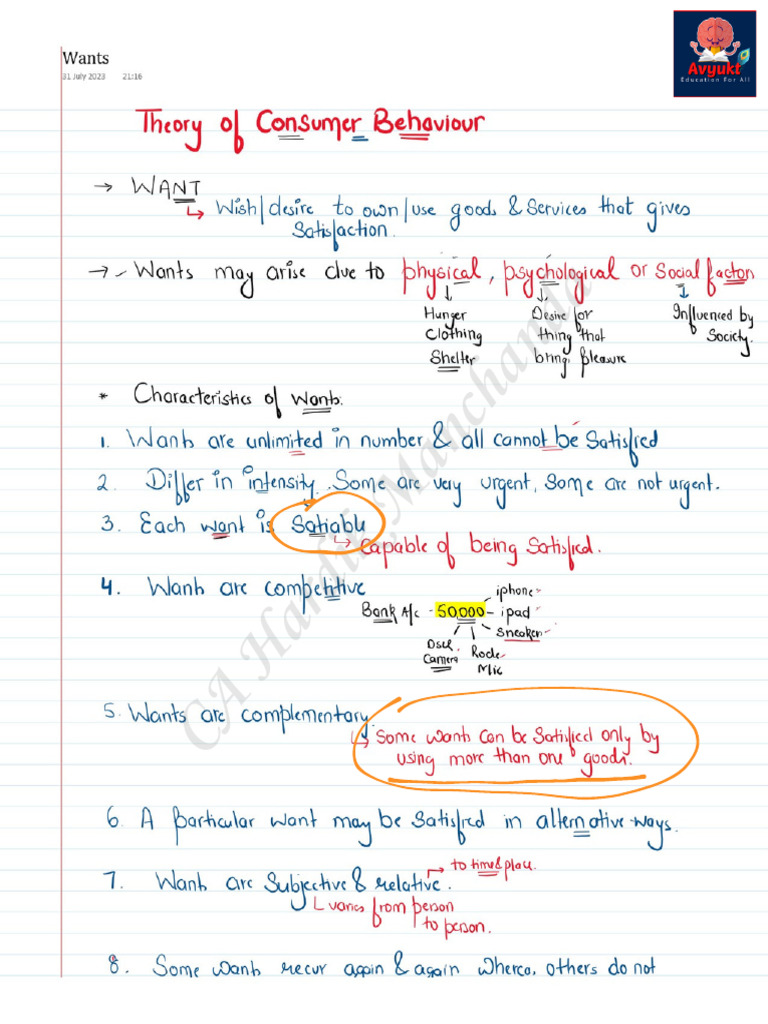 Avyukt
Education For All
Wants
31 July 2023 21:16
Theory of Consumer Behaviour
→ WANT
↳ Wish/desire to own/use goods & services that gives
Satisfaction.
→ Wants may arise due to physical, psychological or Social factors
↓ Hunger
Clothing
Shelter
↓ Desire for
thing that
bring pleasure
↓ Influenced by
Society.
* Characteristics of Wants.
1. Wants are unlimited in number & all cannot be Satisfied
2. Differ in intensity. Some are very urgent, Some are not urgent.
3. Each want is Satiable
↳ Capable of being Satisfied.
4. Wants are competitive
Bank A/c - 50,000 - iphone
ipad
Sneaker
DSLR
Camera
Rode
Mic
5. Wants are complementary
↳ Some want can be Satisfied only by
using more than one goods.
6. A particular want may be Satisfied in alternative ways.
7. Wants are Subjective & relative.
→ to time & place.
varies from person
to person.
8. Some wants recur again & again whereas others do not
CA Hardik Manchanda